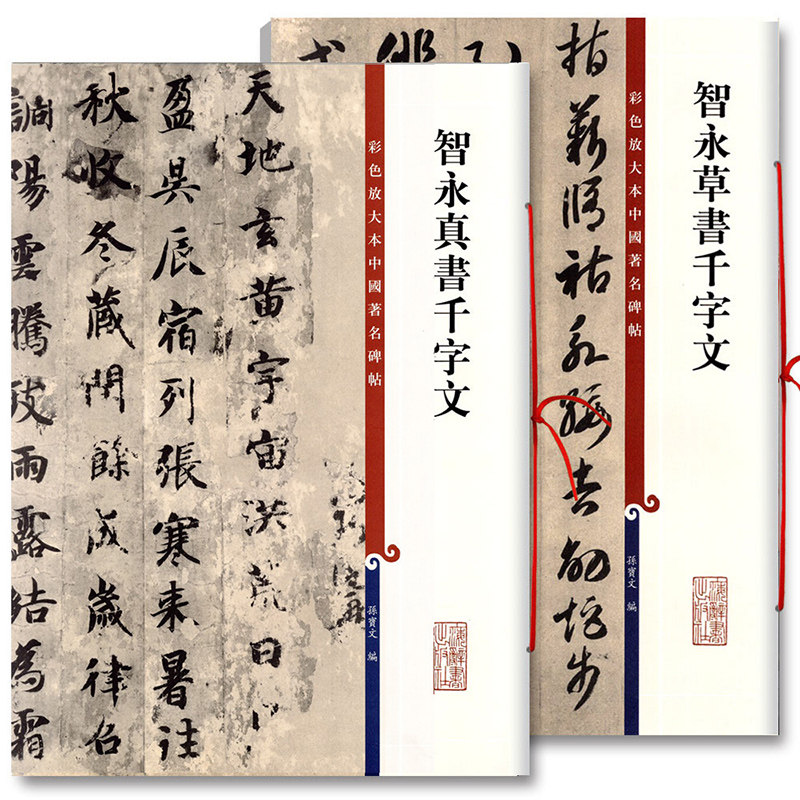 智永真書千字文
彩色放大本中國著名碑帖
孫寶文 編
上海辭書出版社
天地玄黄宇宙洪荒日
盈昃辰宿列張寒来暑往
秋收冬藏閏餘成歲律召
調陽雲騰致雨露結為霜
智永草書千字文
彩色放大本中國著名碑帖
孫寶文 編
上海辭書出版社
指薪脩祜永綏吉劭矩步